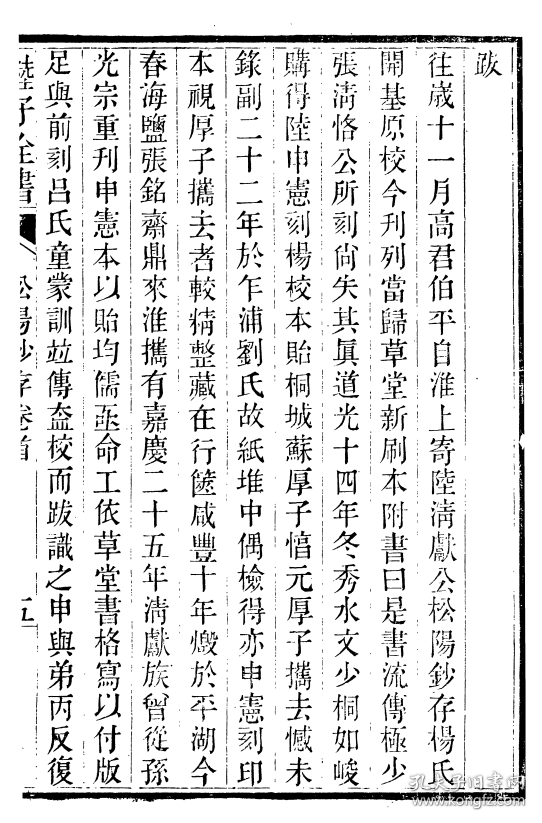 跋
往歲十一月高君伯平自淮上寄陸淸獻公松陽鈔存楊氏
開基原校今刊列當歸草堂新刷本附書曰是書流傳極少
張淸恪公所刻尙失其眞道光十四年冬秀水文少桐如峻
購得陸申憲刻楊校本貽桐城蘇厚子惇元厚子攜去憾未
錄副二十二年於乍浦劉氏故紙堆中偶檢得亦申憲刻印
本視厚子攜去者較精整藏在行篋咸豐十年燬於平湖今
春海鹽張銘齋鼎來淮攜有嘉慶二十五年淸獻族曾從孫
光宗重刊申憲本以貽均儒亟命工依草堂書格寫以付版
足與前刻呂氏童蒙訓竝傳盍校而跋識之申與弟丙反復
陸子全書
松陽鈔存卷首
五
孔夫子旧书网
www.kongfz.com